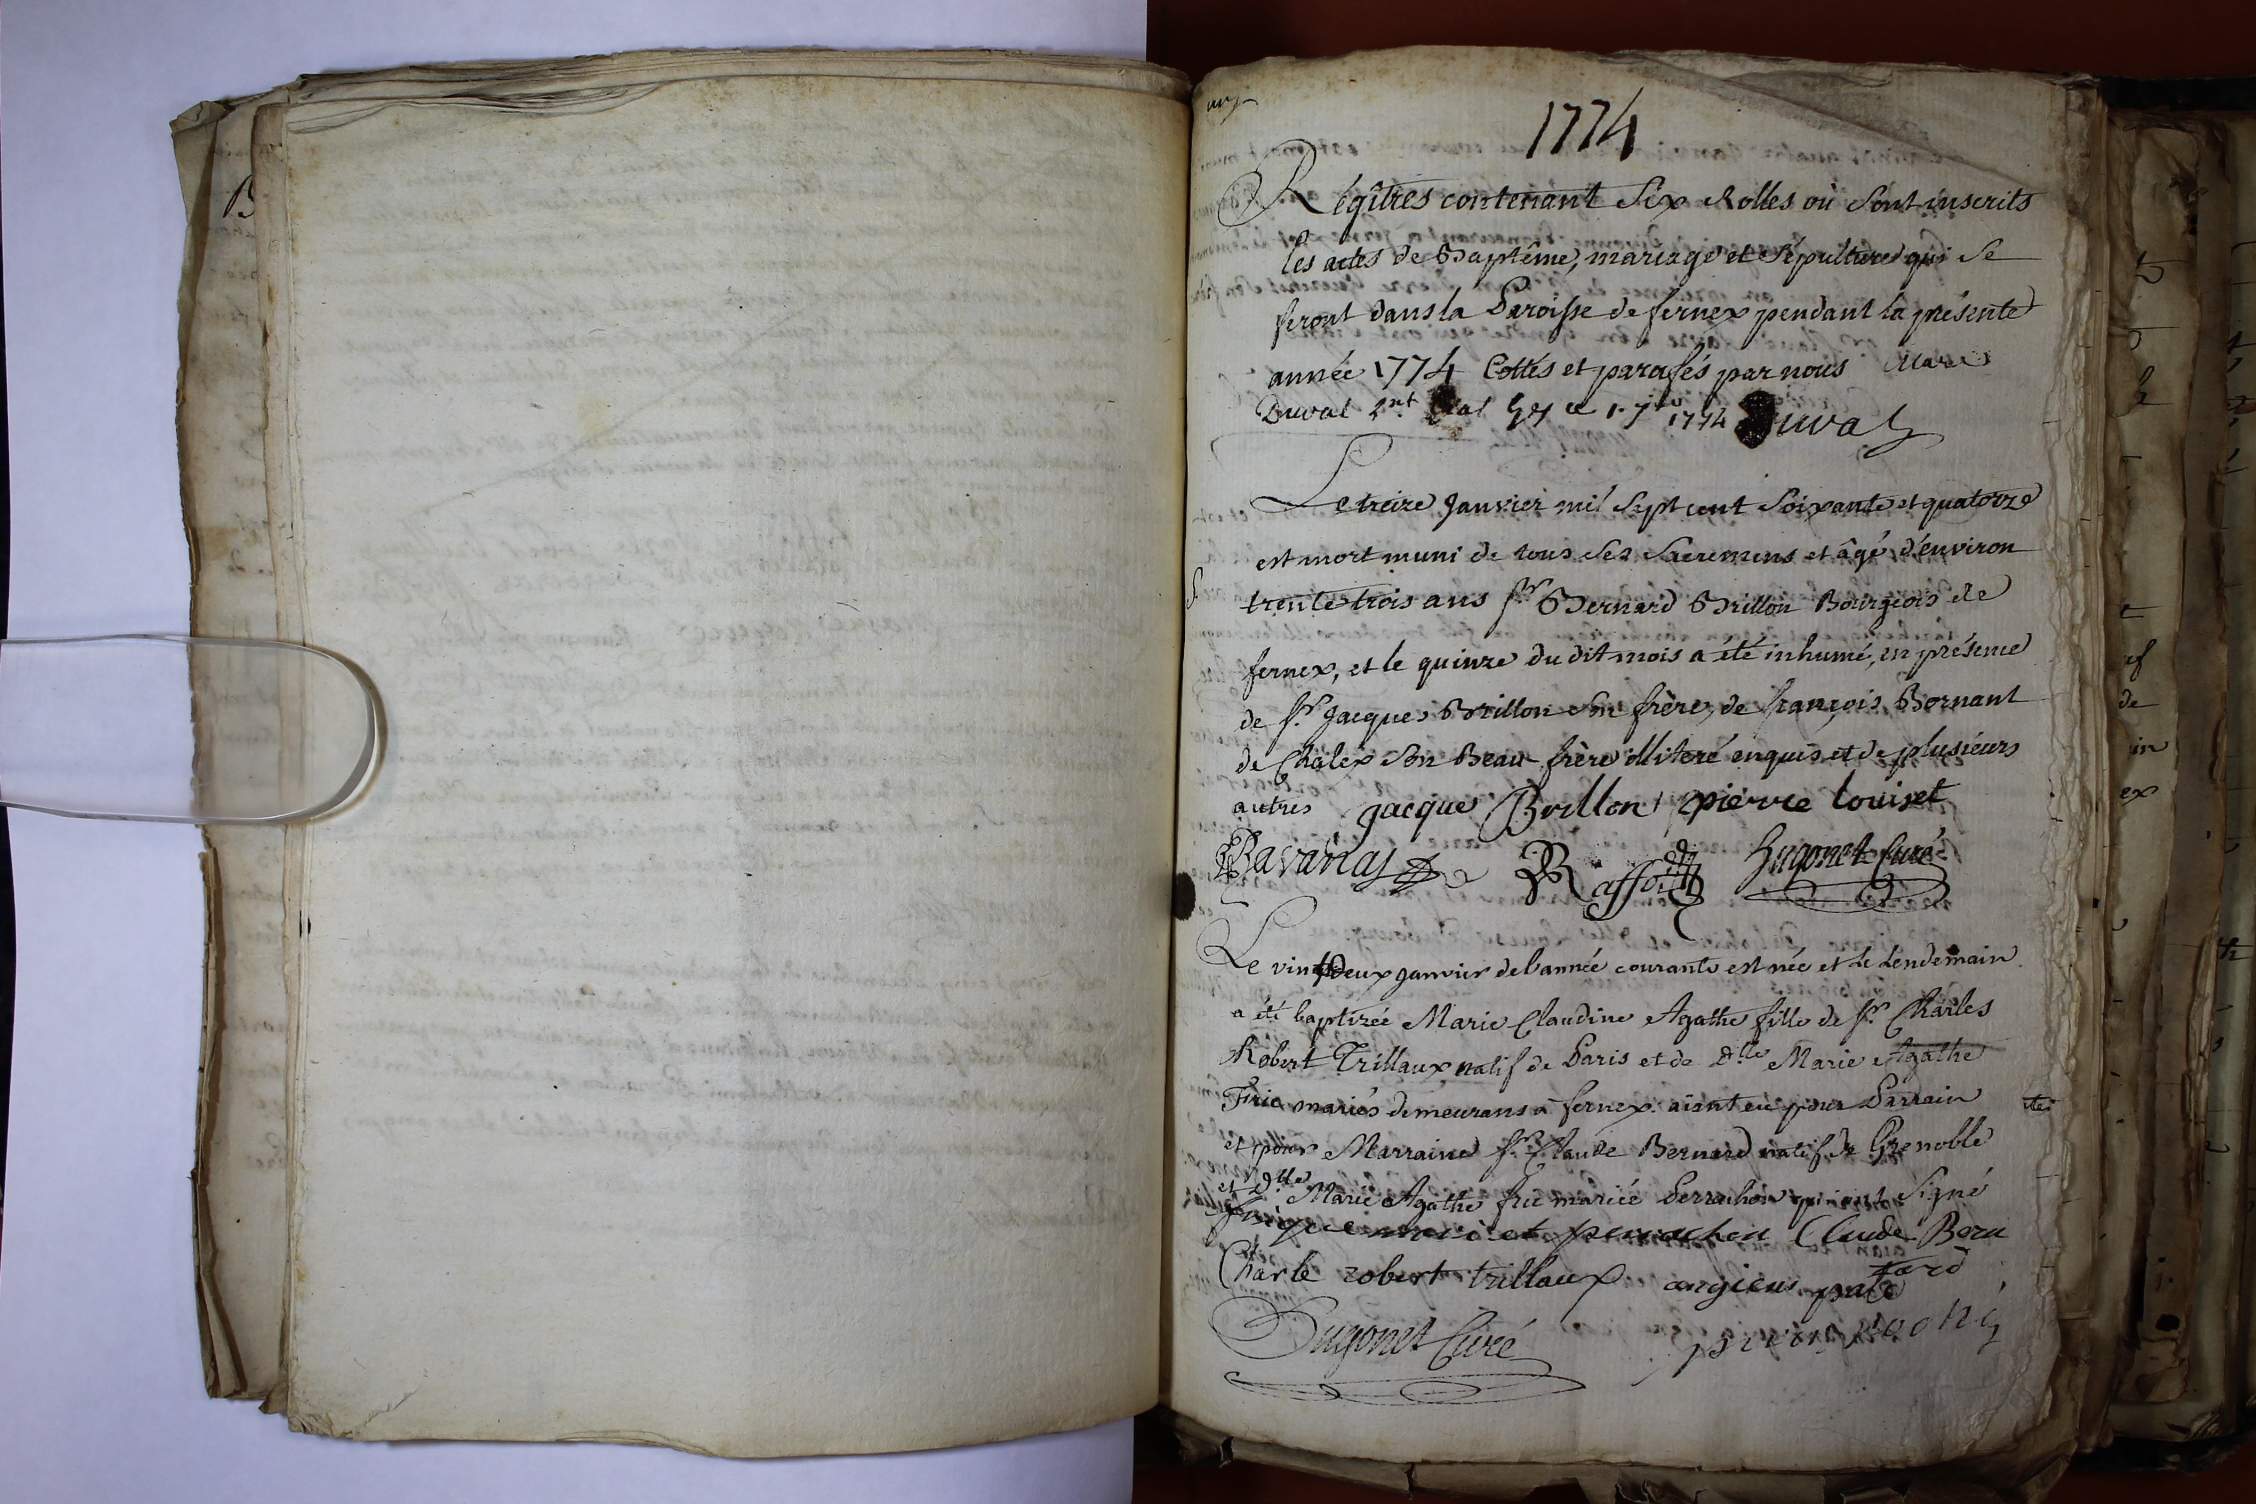 1774
Régîtres contenant Six Rolles où Sont inscrits
les actes de Baptême, mariage et Sépulture qui Se
feront dans la Paroisse de fernex pendant la présente
année 1774 Cottés et parafés par nous Marc
Duval Lnt Gex ce 1774 Duval
Le treize Janvier mil Sept cent Soixante et quatorze
est mort muni de tous Ses Sacremens et âgé d'environ
S.
trente trois ans Sr Bernard Brillon Bourgeois de
fernex, et le quinze du dit mois a été inhumé, en présence
de Sr Jacques Brillon Son frère, de françois Bornant
de Chalex Son Beau frère illiteré enquis et de plusieurs
autres Jacque Brillon pierre louiset
Ravanas Raffo Hugonet Curé
Le vingt Deux Janvier de l'année courante est née et le lendemain
a été baptizée Marie Claudine Agathe fille de Sr Charles
Robert Trillaux natif de Paris et de Dlle Marie Agathe
Fric mariés demeurans à fernex aiant eu pour Parrain
et pour Marraine Sr Claude Bernard natif de Grenoble
et Dlle Marie Agathe fric mariée Perrachon qui ont Signé
perrachon Claude Bern
ard
Charle robert trillaux
Hugonet Curé